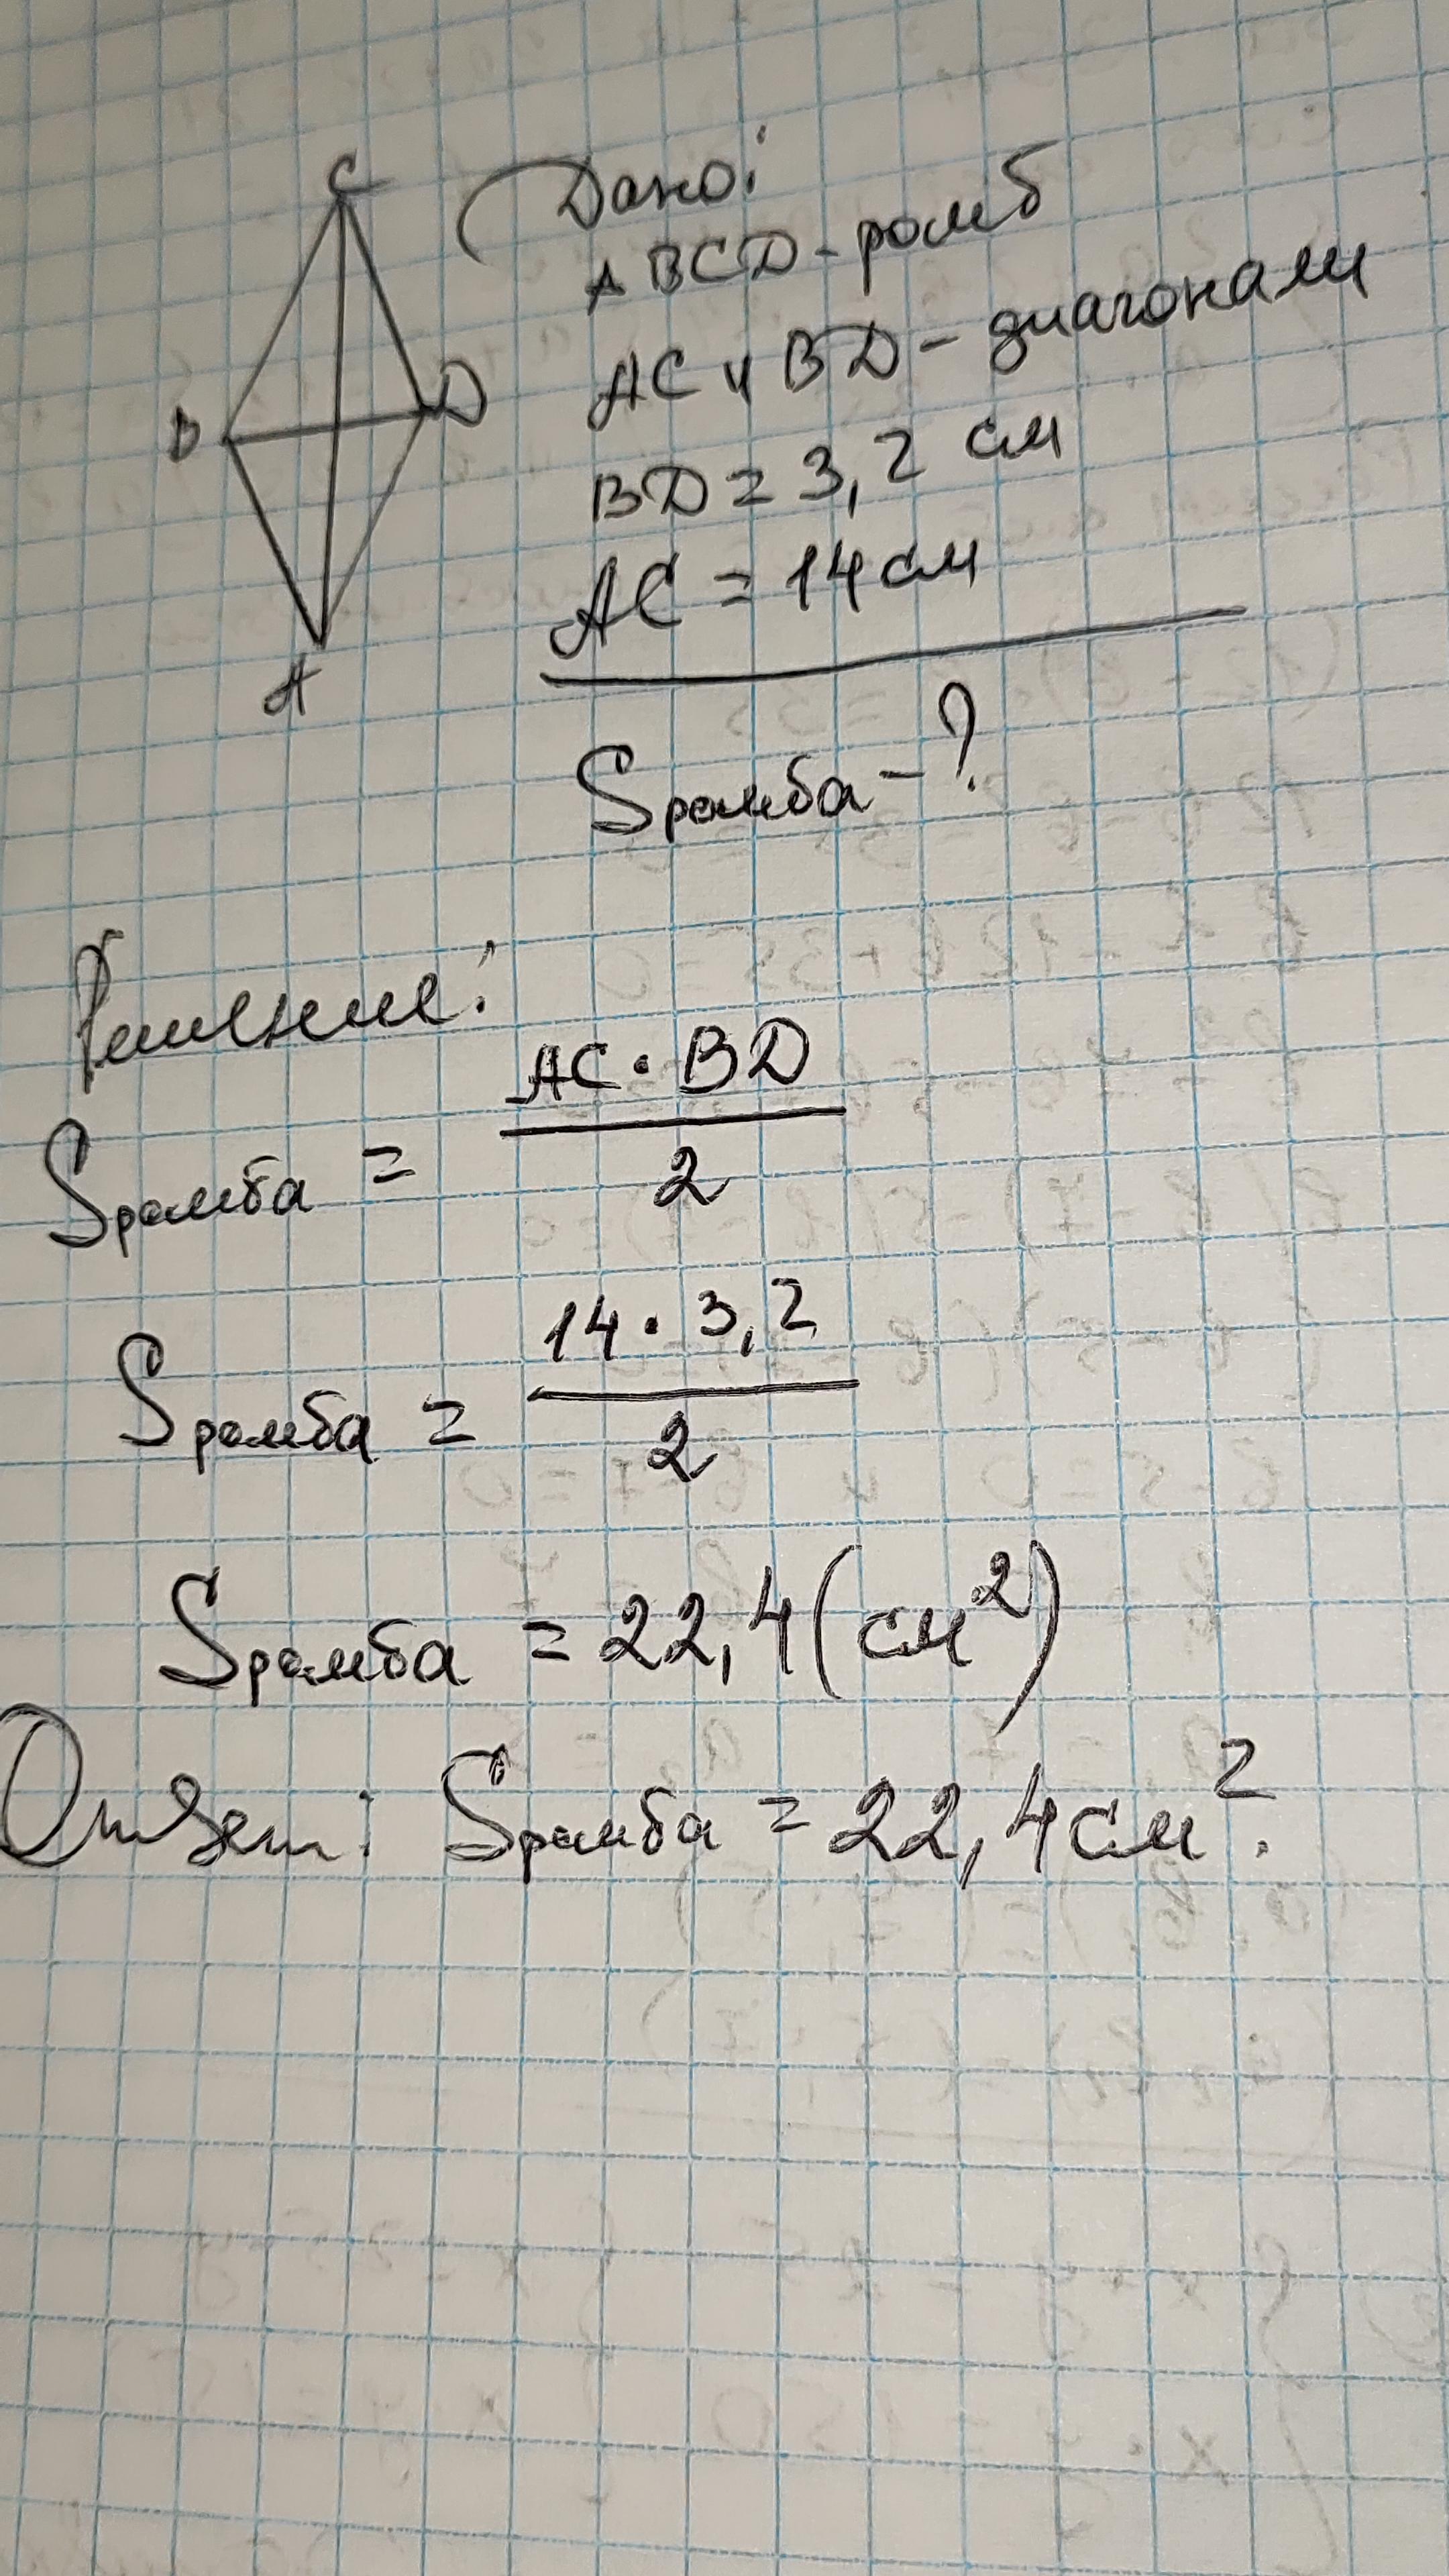 C
B
D
A
Дано:
ABCD - ромб
AC и BD - диагонали
BD = 3,2 см
AC = 14 см
Sромба - ?
Решение:
Sромба = AC · BD / 2
Sромба = 14 · 3,2 / 2
Sромба = 22,4 (см²)
Ответ: Sромба = 22,4 см².